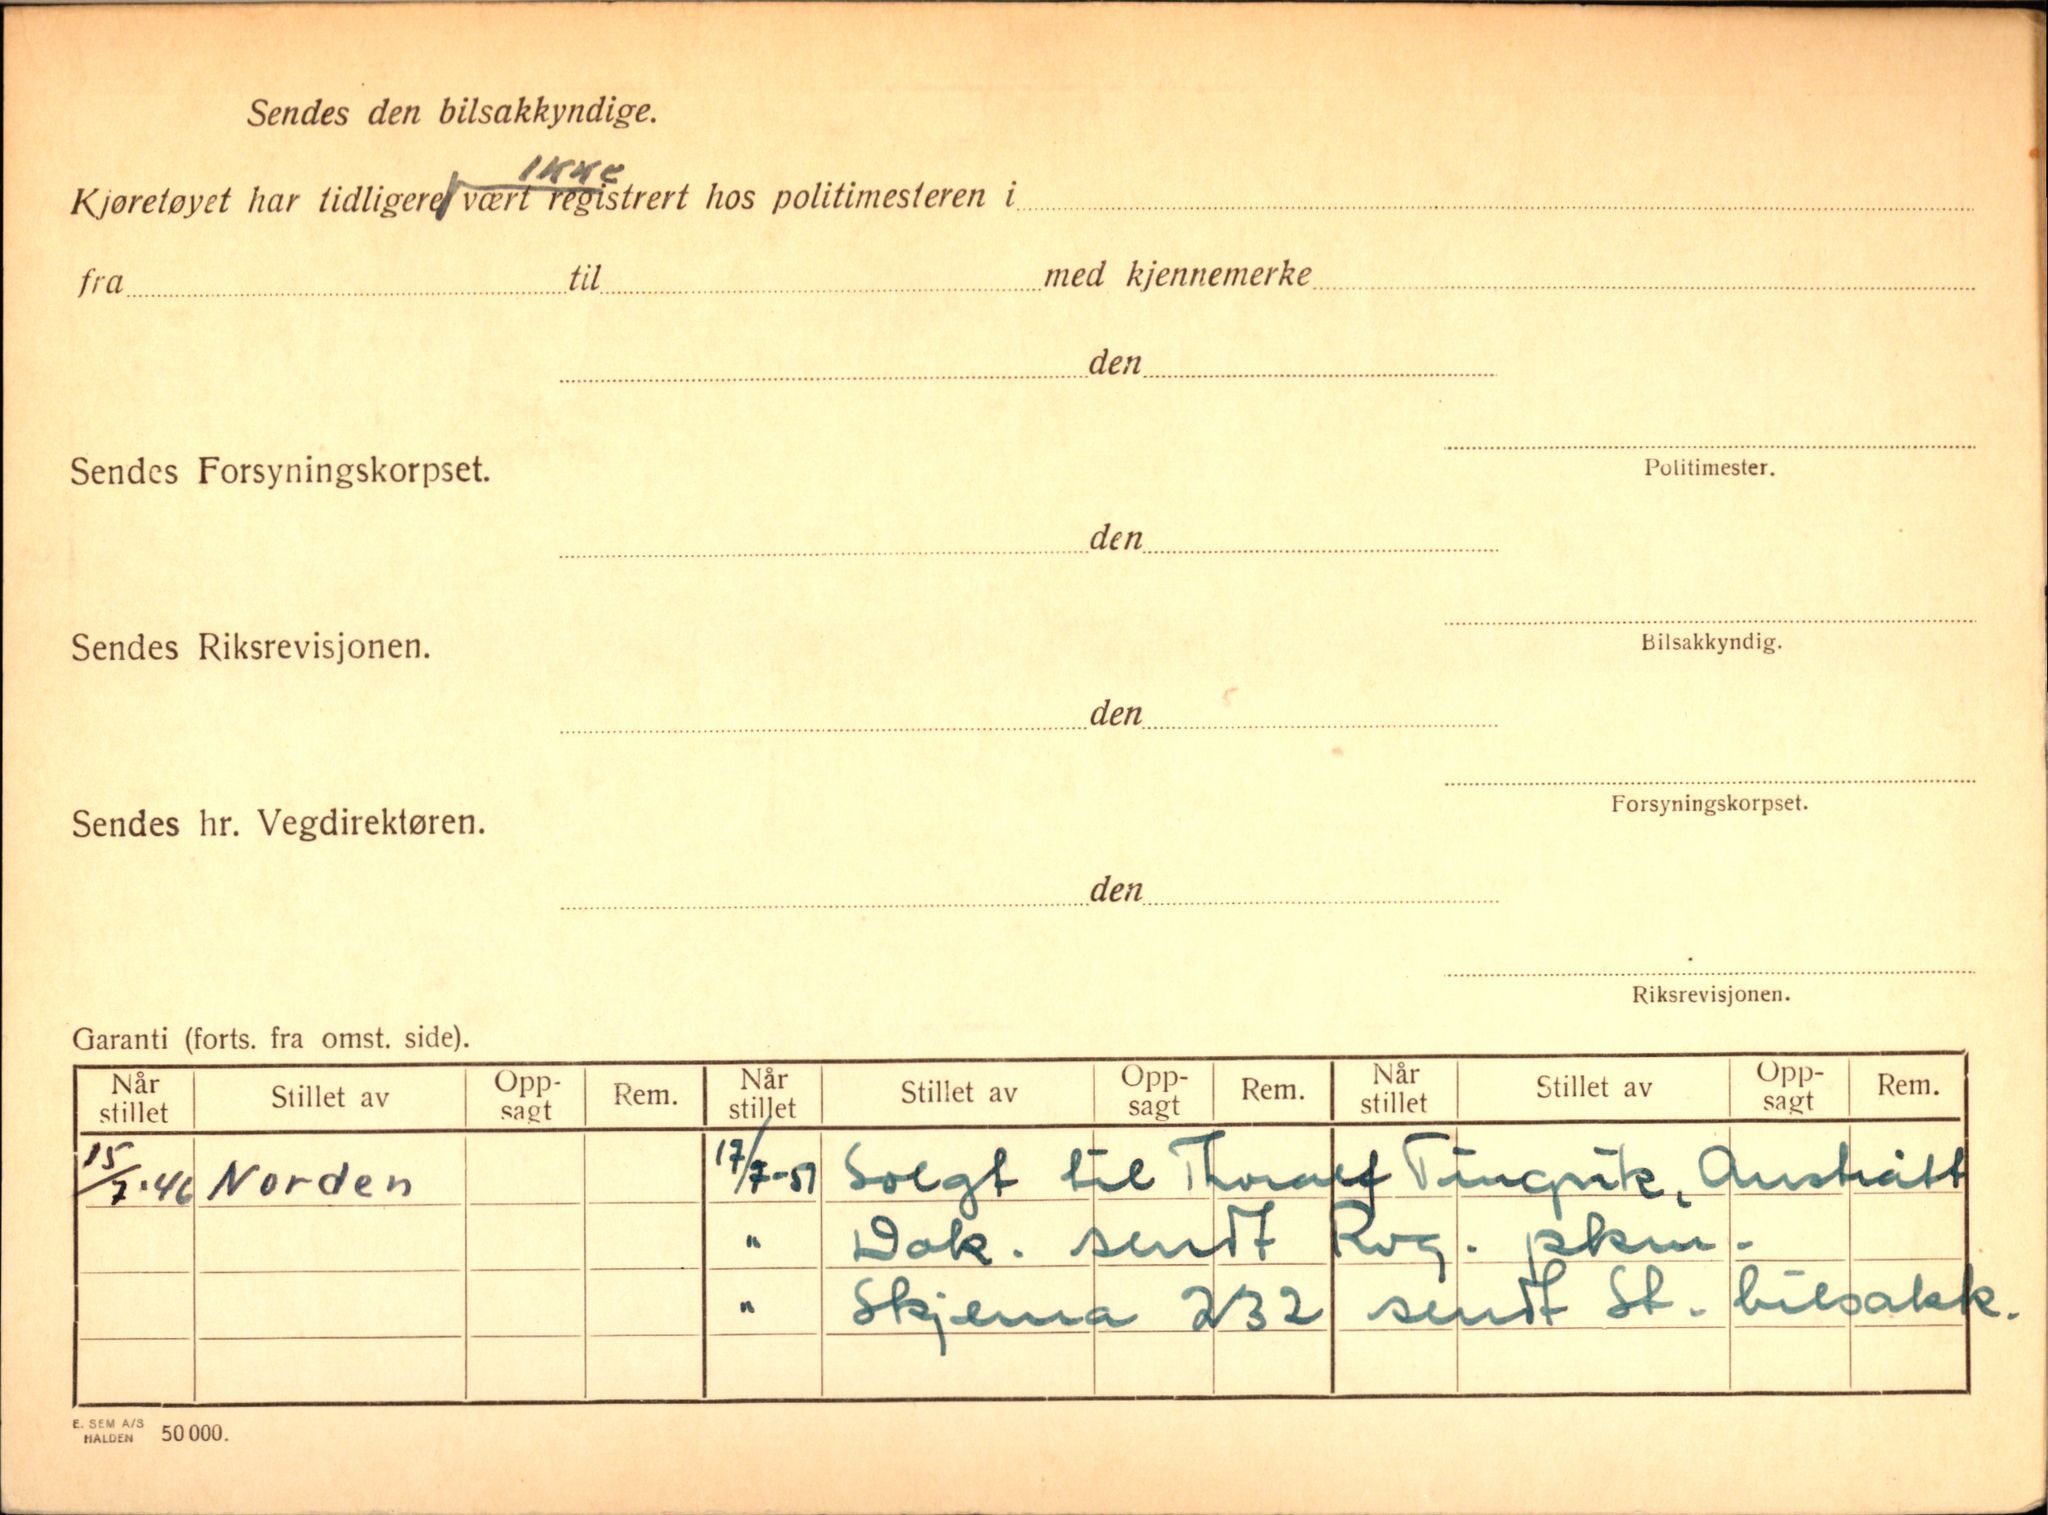 Sendes den bilsakkyndige.
ikke
Kjøretøyet har tidligere vært registrert hos politimesteren i
fra til med kjennemerke
den
Politimester.
Sendes Forsyningskorpset.
den
Bilsakkyndig.
Sendes Riksrevisjonen.
den
Forsyningskorpset.
Sendes hr. Vegdirektøren.
den
Riksrevisjonen.
Garanti (forts. fra omst. side).
Når stillet Stillet av Opp-sagt Rem. Når stillet Stillet av Opp-sagt Rem. Når stillet Stillet av Opp-sagt Rem.
15/7-46 Norden 17/7-51 Solgt til Thoralf Austrått
" Dok. sendt Rog. pkm.
" Skjema 232 sendt St. bilsakk.
E. SEM A/S
HALDEN 50 000.